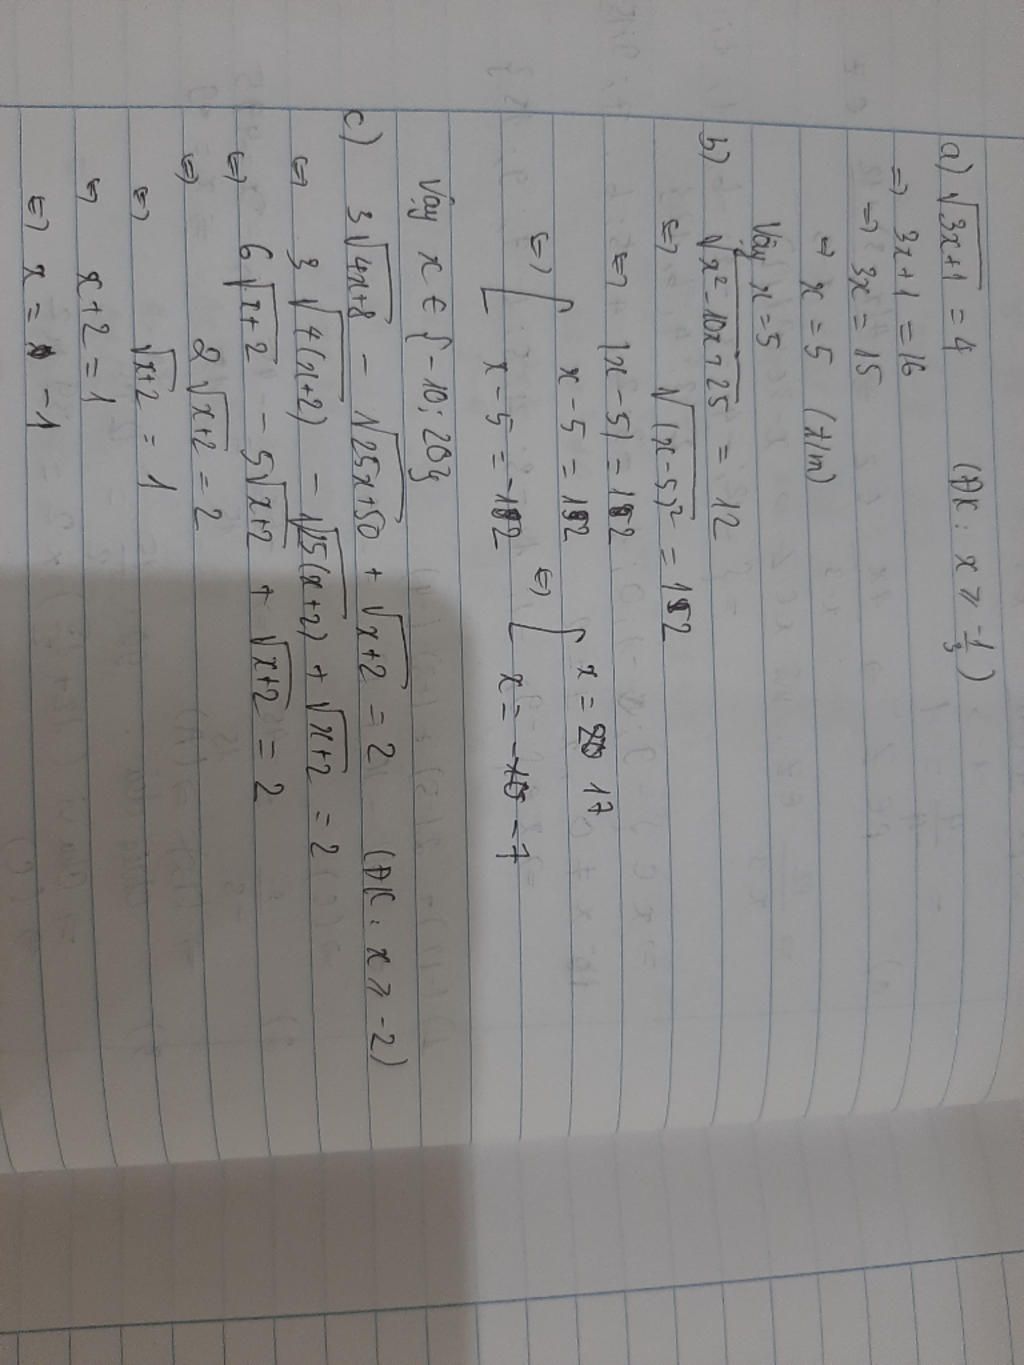 a) √(3x+1) = 4 (ĐK: x ≥ -1/3)
=> 3x+1 = 16
=> 3x = 15
=> x = 5 (t/m)
Vậy x = 5
b) √(x²-10x+25) = 12
<=> √((x-5)²) = 12
<=> |x-5| = 12
<=> [ x-5 = 12 <=> [ x = 17
x-5 = -12 x = -7
Vậy x ∈ {-10; 20}
c) 3√(4x+8) - √(25x+50) + √(x+2) = 2 (ĐK: x ≥ -2)
<=> 3√(4(x+2)) - √(25(x+2)) + √(x+2) = 2
<=> 6√(x+2) - 5√(x+2) + √(x+2) = 2
<=> 2√(x+2) = 2
<=> √(x+2) = 1
<=> x+2 = 1
<=> x = -1